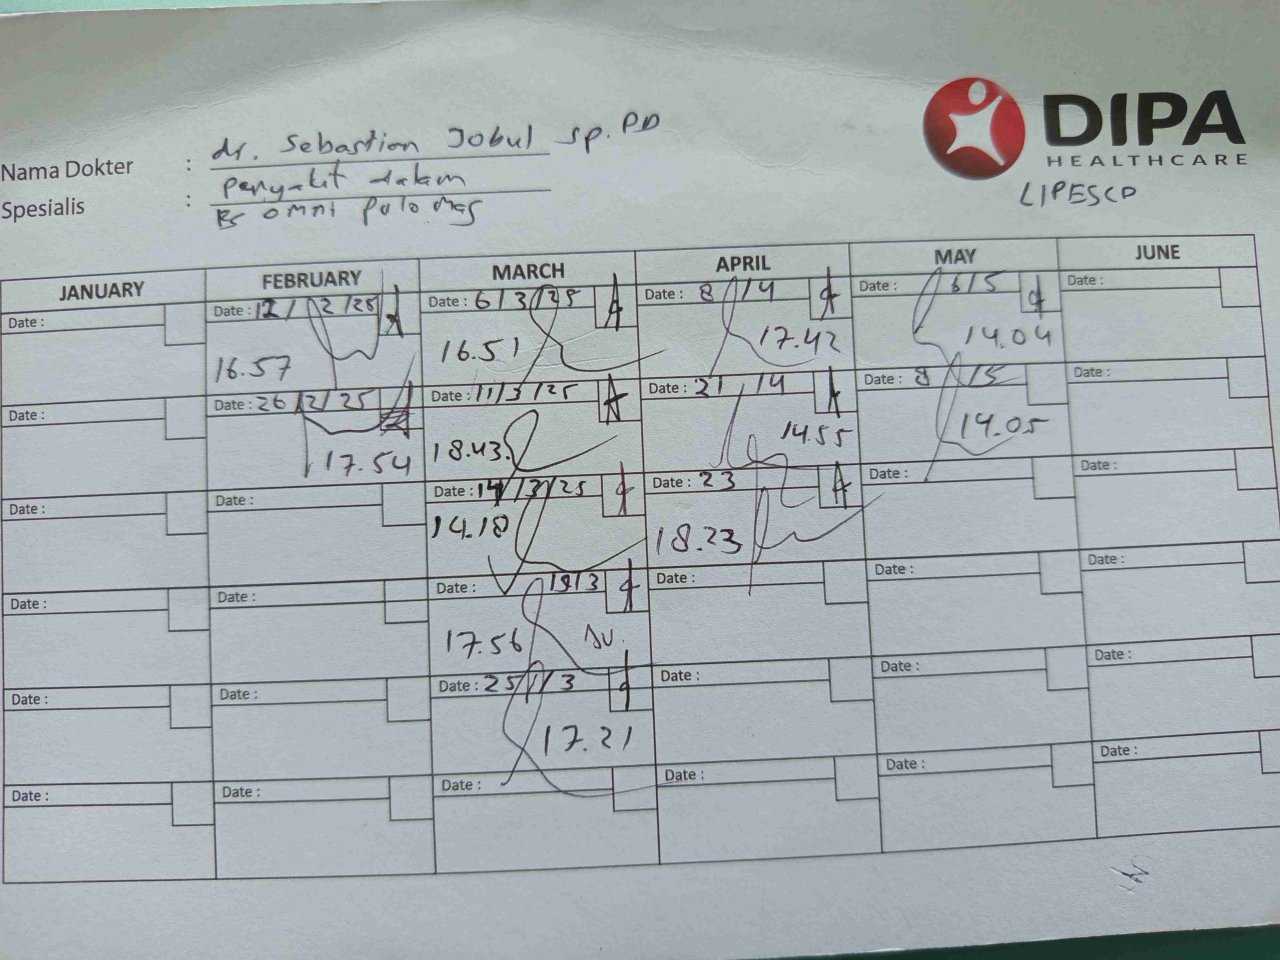 DIPA
HEALTHCARE
LIPESCO
Nama Dokter : dr. Sebastian Jobul Sp.PD
Spesialis : Penyakit dalam
RS omni pulo mas
JANUARY FEBRUARY MARCH APRIL MAY JUNE
Date : Date : 12/2/25 Date : 6/3/25 Date : 8/4 Date : 6/5 Date :
16.57 16.51 17.42 14.04
Date : Date : 26/2/25 Date : 11/3/25 Date : 21/4 Date : 8/5 Date :
17.54 18.43 14.55 14.05
Date : Date : Date : 14/3/25 Date : 23 Date : Date :
14.18 18.23
Date : Date : Date : 19/3 Date : Date : Date :
17.56
Date : Date : Date : 25/3 Date : Date : Date :
17.21
Date : Date : Date : Date : Date : Date :